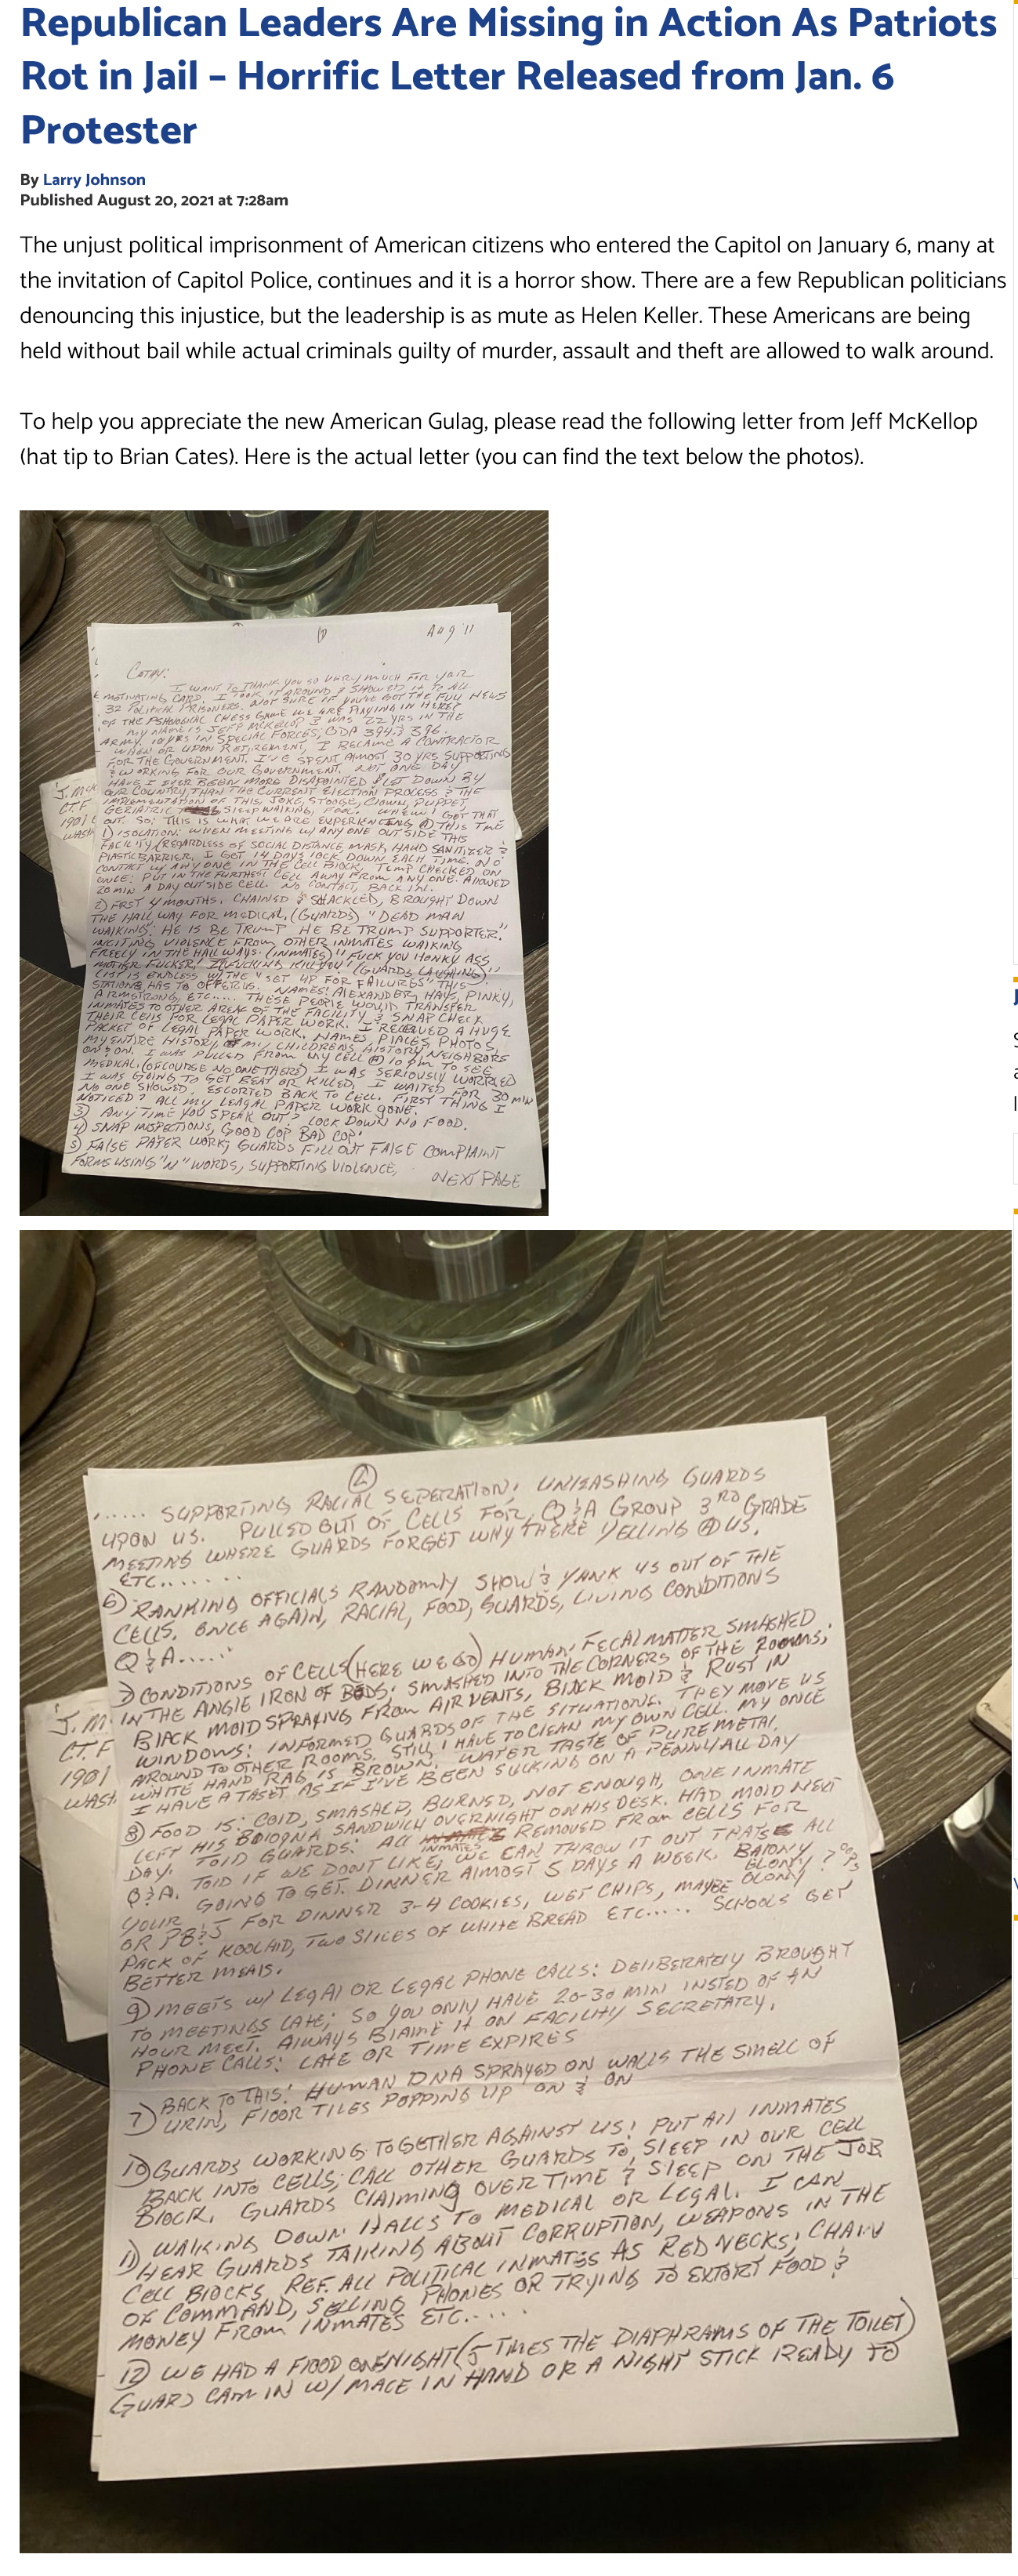 Republican Leaders Are Missing in Action As Patriots
Rot in Jail – Horrific Letter Released from Jan. 6
Protester
By Larry Johnson
Published August 20, 2021 at 7:28am
The unjust political imprisonment of American citizens who entered the Capitol on January 6, many at
the invitation of Capitol Police, continues and it is a horror show. There are a few Republican politicians
denouncing this injustice, but the leadership is as mute as Helen Keller. These Americans are being
held without bail while actual criminals guilty of murder, assault and theft are allowed to walk around.
To help you appreciate the new American Gulag, please read the following letter from Jeff McKellop
(hat tip to Brian Cates). Here is the actual letter (you can find the text below the photos).
Aug 11
CATHY:
I WANT TO THANK YOU SO VERY MUCH FOR YOUR
MOTIVATING CARD. I TOOK IT AROUND & SHOWED IT TO ALL
32 POLITICAL PRISONERS. NOT SURE IF YOU'VE GOT THE FULL NEWS
OF THE PSHOLOGICAL CHESS GAME WE ARE PLAYING IN HERE?
MY NAME IS JEFF MCKELLOP I WAS 22 YRS IN THE
ARMY, 10 YRS IN SPECIAL FORCES, ODA 394 & 396.
WHEN OR UPON RETIREMENT, I BECAME A CONTRACTOR
FOR THE GOVERNMENT. I'VE SPENT ALMOST 30 YRS SUPPORTING
& WORKING FOR OUR GOVERNMENT. NOT ONE DAY
HAVE I EVER BEEN MORE DISAPOINTED & LET DOWN BY
OUR COUNTRY THAN THE CURRENT ELECTION PROCESS & THE
IMPLEMENTATION OF THIS JOKE, STOOGE, CLOWN, PUPPET,
GERIATRIC SLEEP WALKING, FOOL. WHEW! GOT THAT
OUT. SO; THIS IS WHAT WE ARE EXPERIENCING @ THIS TIME
1) ISOLATION: WHEN MEETING W/ ANY ONE OUTSIDE THIS
FACILITY (REGARDLESS OF SOCIAL DISTANCE, MASK, HAND SANITIZER &
PLASTIC BARRIER, I GET 14 DAYS LOCK DOWN EACH TIME. NO
CONTACT W/ ANY ONE IN THE CELL BLOCK, TEMP CHECKED ON
ONCE; PUT IN THE FURTHEST CELL AWAY FROM ANY ONE. ALLOWED
20 MIN A DAY OUTSIDE CELL. NO CONTACT, BACK IN.
2) FRST 4 MONTHS. CHAINED & SHACKLED, BROUGHT DOWN
THE HALL WAY FOR MEDICAL, (GUARDS) "DEAD MAN
WALKING. HE IS BE TRUMP HE BE TRUMP SUPPORTER."
INCITING VIOLENCE FROM OTHER INMATES WALKING
FREELY IN THE HALL WAYS. (INMATES) "FUCK YOU HONKY ASS
MOTHER FUCKER! I FUCKING KILL YOU" (GUARDS LAUGHING)
LIST IS ENDLESS W/ THE "SET UP FOR FAILURES" THIS
STATIONS HAS TO OFFER US. NAMES: ALEXANDER, HAYS, PINKY,
ARMSTRONG, ETC..... THESE PEOPLE WOULD TRANSFER
INMATES TO OTHER AREAS OF THE FACILITY & SNAP CHECK
THEIR CELLS FOR LEGAL PAPER WORK. I RECEIVED A HUGE
PACKET OF LEGAL PAPER WORK. NAMES PLACES PHOTOS,
MY ENTIRE HISTORY, MY CHILDRENS HISTORY, NEIGHBORS
ON & ON. I WAS PULLED FROM MY CELL @ 10 pm TO SEE
MEDICAL. (OF COURSE NO ONE THERE) I WAS SERIOUSLY WORRIED
I WAS GOING TO GET BEAT OR KILLED. I WAITED FOR 30 MIN
NO ONE SHOWED. ESCORTED BACK TO CELL. FIRST THING I
NOTICED? ALL MY LEAGAL PAPER WORK GONE.
3) ANY TIME YOU SPEAK OUT? LOCK DOWN NO FOOD.
4) SNAP INSPECTIONS, GOOD COP BAD COP.
5) FALSE PAPER WORK; GUARDS FILL OUT FALSE COMPLAINT
FORMS USING "N" WORDS, SUPPORTING VIOLENCE,
NEXT PAGE
J. McK
C.T.F
1901
WASH
2
...... SUPPORTING RACIAL SEPERATION, UNLEASHING GUARDS
UPON US. PULLED OUT OF CELLS FOR Q & A GROUP 3RD GRADE
MEETING WHERE GUARDS FORGET WHY THERE YELLING @ US.
ETC.......
6) RANKING OFFICIALS RANDOMLY SHOW & YANK US OUT OF THE
CELLS. ONCE AGAIN, RACIAL, FOOD, GUARDS, LIVING CONDITIONS
Q & A.....
7) CONDITIONS OF CELLS (HERE WE GO) HUMAN FECAL MATTER SMASHED
IN THE ANGLE IRON OF BEDS; SMASHED INTO THE CORNERS OF THE ROOMS;
BLACK MOLD SPRAYING FROM AIR VENTS, BLACK MOLD & RUST IN
WINDOWS: INFORMED GUARDS OF THE SITUATIONS. THEY MOVE US
AROUND TO OTHER ROOMS. STILL I HAVE TO CLEAN MY OWN CELL. MY ONCE
WHITE HAND RAG IS BROWN. WATER TASTE OF PURE METAL.
I HAVE A TASET AS IF I'VE BEEN SUCKING ON A PENNY ALL DAY
8) FOOD IS: COLD, SMASHED, BURNED, NOT ENOUGH, ONE INMATE
LEFT HIS BOLOGNA SANDWICH OVERNIGHT ON HIS DESK. HAD MOLD NEXT
DAY. TOLD GUARDS: ALL INMATES REMOVED FROM CELLS FOR
Q & A. TOLD IF WE DONT LIKE; WE CAN THROW IT OUT THATS ALL
YOUR GOING TO GET. DINNER ALMOST 5 DAYS A WEEK. BALONY
BLONY? OOPS
OR PB&J FOR DINNER 3-4 COOKIES, WET CHIPS, MAYBE BLONY
PACK OF KOOLAID, TWO SLICES OF WHITE BREAD ETC..... SCHOOLS GET
BETTER MEALS.
9) MEETS W/ LEGAL OR LEGAL PHONE CALLS: DELIBERATELY BROUGHT
TO MEETINGS LATE; SO YOU ONLY HAVE 20-30 MIN INSTED OF AN
HOUR MEET. ALWAYS BLAME IT ON FACILITY SECRETARY.
PHONE CALLS: LATE OR TIME EXPIRES
7) BACK TO THIS: HUMAN DNA SPRAYED ON WALLS THE SMELL OF
URIN, FLOOR TILES POPPING UP ON & ON
10) GUARDS WORKING TOGETHER AGAINST US! PUT ALL INMATES
BACK INTO CELLS; CALL OTHER GUARDS TO SLEEP IN OUR CELL
BLOCK. GUARDS CLAIMING OVERTIME & SLEEP ON THE JOB
11) WALKING DOWN HALLS TO MEDICAL OR LEGAL. I CAN
HEAR GUARDS TALKING ABOUT CORRUPTION, WEAPONS IN THE
CELL BLOCKS, REF. ALL POLITICAL INMATES AS RED NECKS; CHAIN
OF COMMAND, SELLING PHONES OR TRYING TO EXTORT FOOD &
MONEY FROM INMATES ETC.....
12) WE HAD A FLOOD ONENIGHT (5 TIMES THE DIAPHRAMS OF THE TOILET)
GUARD CAM IN W/ MACE IN HAND OR A NIGHT STICK READY TO
J. M
C.T.F
1901
WASH